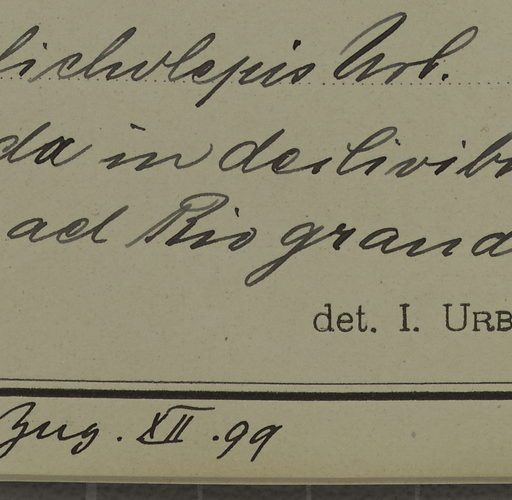 licholepis Urb.
da in declivib
ad Rio grand
det. I. URB
Aug. XII. 99